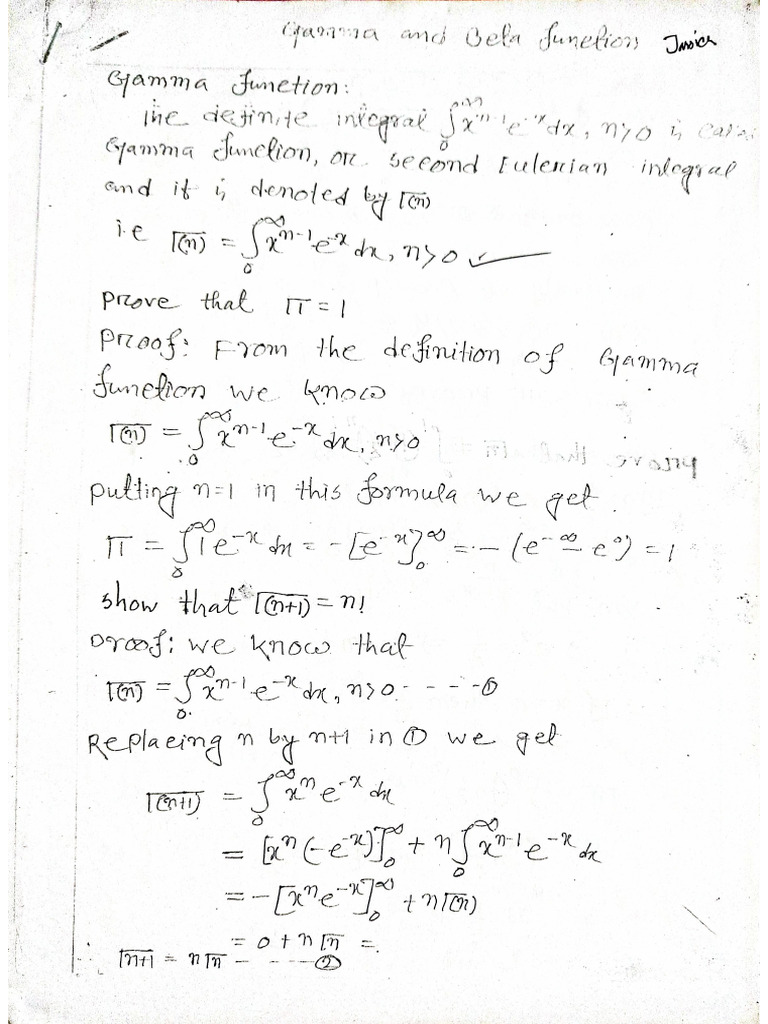 Gamma and Beta function
Gamma function:
The definite integral ∫₀^∞ x^{n-1} e^{-x} dx, n>0 is
Gamma function, or second Eulerian integral
and it is denoted by Γ(n)
i.e Γ(n) = ∫₀^∞ x^{n-1} e^{-x} dx, n>0 ✓
prove that Γ1 = 1
Proof: From the definition of Gamma
function we know
Γ(n) = ∫₀^∞ x^{n-1} e^{-x} dx, n>0
putting n=1 in this formula we get
Γ1 = ∫₀^∞ 1 e^{-x} dx = -[e^{-x}]₀^∞ = -(e^{-∞} - e^0) = 1
show that Γ(n+1) = n!
Proof: we know that
Γ(n) = ∫₀^∞ x^{n-1} e^{-x} dx, n>0 - - - - ①
Replacing n by n+1 in ① we get
Γ(n+1) = ∫₀^∞ x^n e^{-x} dx
= [x^n (-e^{-x})]₀^∞ + n ∫₀^∞ x^{n-1} e^{-x} dx
= -[x^n e^{-x}]₀^∞ + nΓ(n)
= 0 + nΓn =
∴ Γn+1 = nΓn - - - - ②